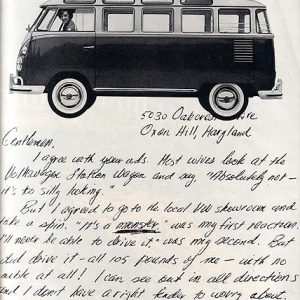 5030
Oxon Hill, Maryland
Gentlemen,
I agree with your ads. Most wives look at the
Volkswagen Station Wagon and say "Absolutely not -
it's so silly looking."
But I agreed to go to the local VW showroom and
take a spin. "It's a monster" was my first reaction.
I'll never be able to drive it" was my second. But
did drive it - all 105 pounds of me - with no
trouble at all! I can see out in all directions
and I don't have a right fender to worry about